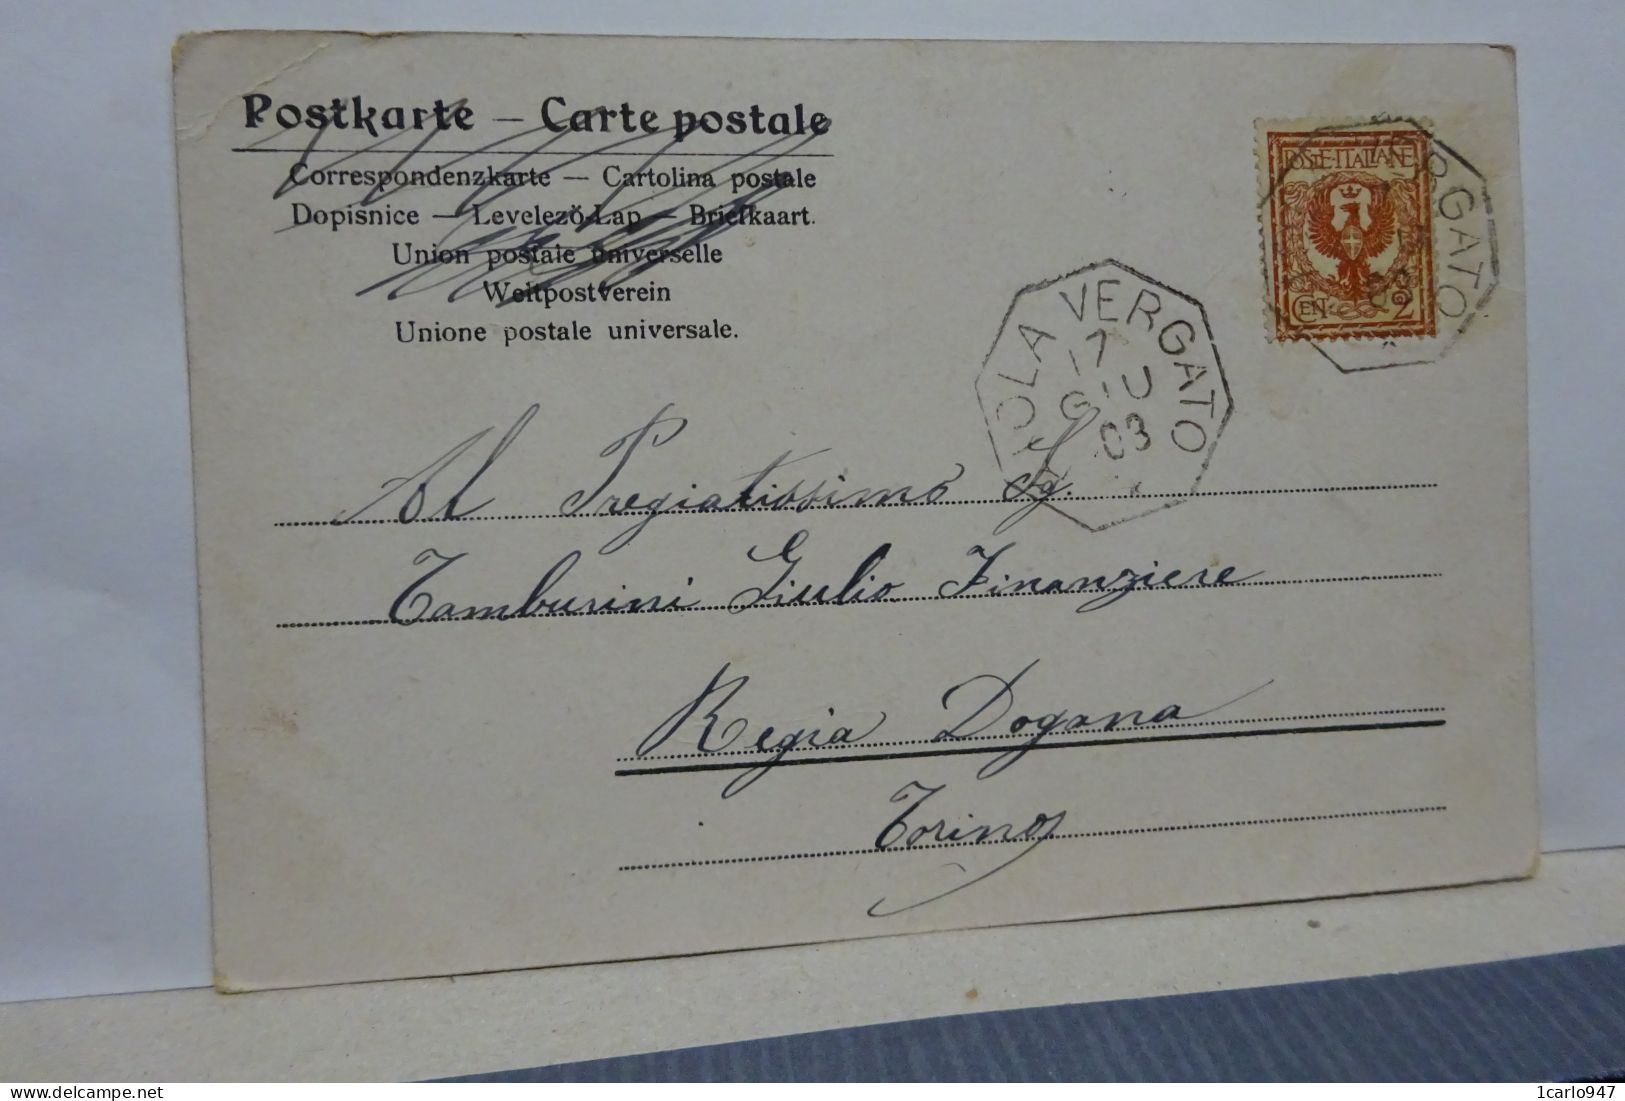 Postkarte — Carte postale
Correspondenzkarte — Cartolina postale
Dopisnice — Levelezö-Lap — Briefkaart.
Union postale universelle
Weltpostverein
Unione postale universale.
POSTE·ITALIANE
CEN. 2
VERGATO
OLA VERGATO
17
GIU
03
Al Pregiatissimo Sg.
Tamburini Giulio Finanziere
Regia Dogana
Torino
1carlo947